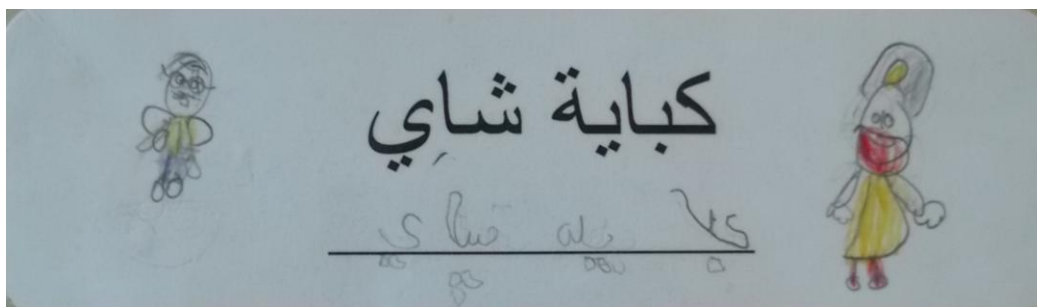 كباية شاِي
كبا يه ي